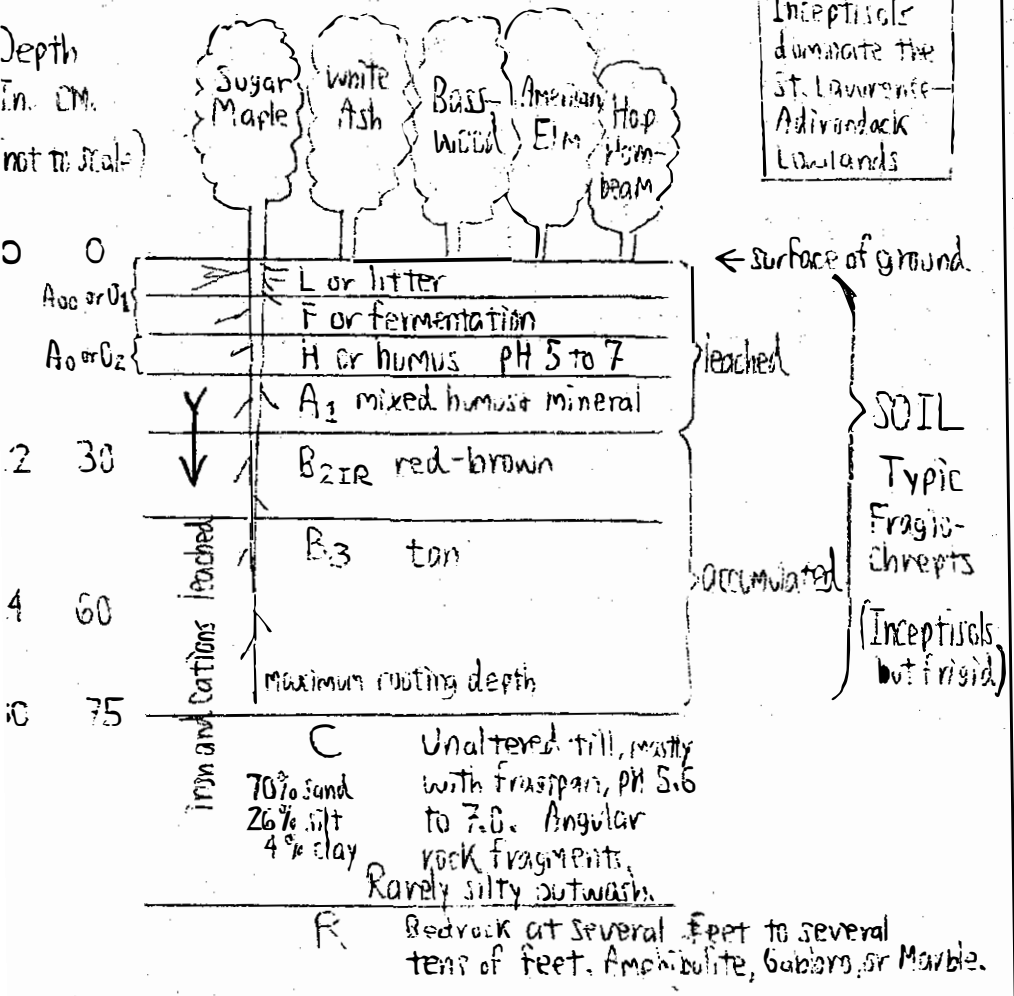 Depth
In. CM.
(not to scale)
Sugar
Maple
White
Ash
Bass-
wood
American
Elm
Hop
Horn-
beam
Inceptisols
dominate the
St. Lawrence-
Adirondack
Lowlands
0 0
← surface of ground.
A00 or O1
L or litter
F or fermentation
A0 or O2
H or humus pH 5 to 7
leached
A1 mixed humus + mineral
12 30
B2IR red-brown
B3 tan
24 60
accumulated
iron and cations leached
maximum rooting depth
30 75
SOIL
Typic
Fragio-
chrepts
(Inceptisols
but frigid)
C
70% sand
26% silt
4% clay
Unaltered till, mostly
with fragipan, pH 5.6
to 7.0. Angular
rock fragments.
Rarely silty outwash.
R
Bedrock at several feet to several
tens of feet. Amphibolite, Gabbro, or Marble.